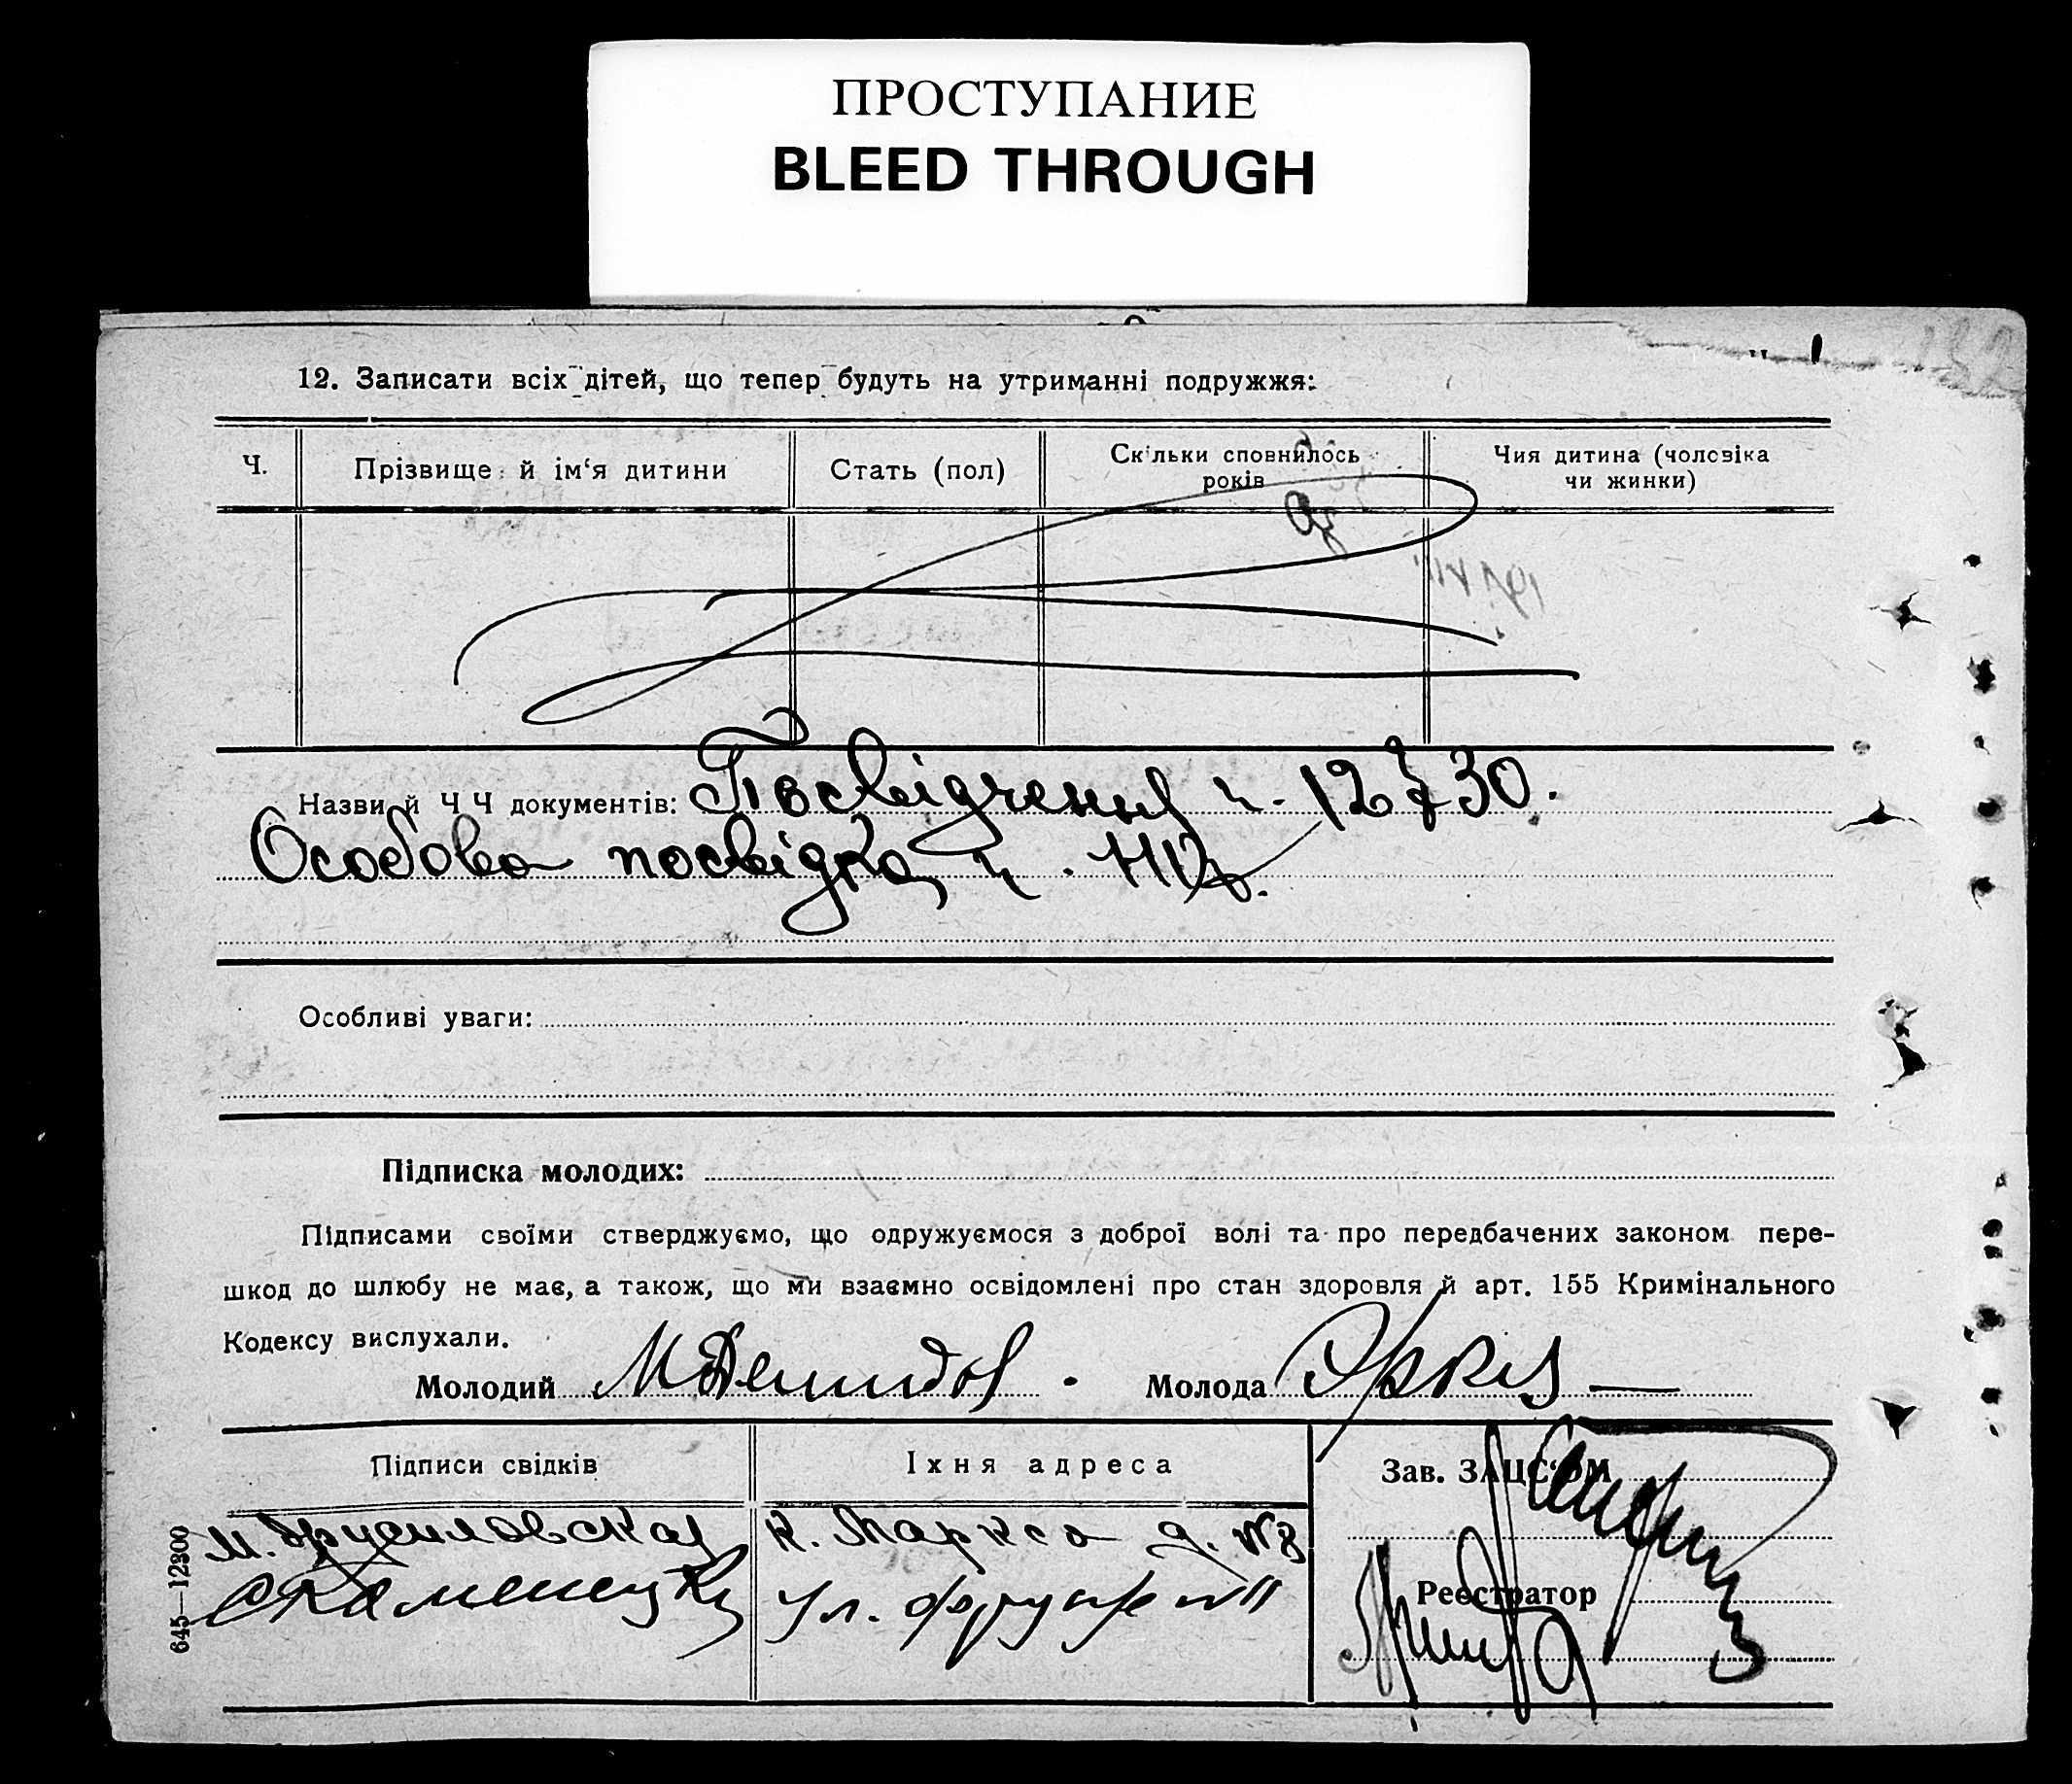 ПРОСТУПАНИЕ
BLEED THROUGH
12. Записати всіх дітей, що тепер будуть на утриманні подружжя:
Ч. Прізвище й ім‘я дитини Стать (пол) Скільки сповнилось років Чия дитина (чоловіка чи жинки)
Назви й Ч Ч документів: Посвідчення ч. 12730.
Особова посвідка ч.
Особливі уваги:
Підписка молодих:
Підписами своїми стверджуємо, що одружуємося з доброї волі та про передбачених законом пере-
шкод до шлюбу не має, а також, що ми взаємно освідомлені про стан здоровля й арт. 155 Кримінального
Кодексу вислухали.
Молодий МДемидов. Молода
Підписи свідків Іхня адреса Зав. ЗАЦС‘ОМ
М. К. Маркса д. №8
Каменецки Ул. Фрунзе №11 Реєстратор
645—12300